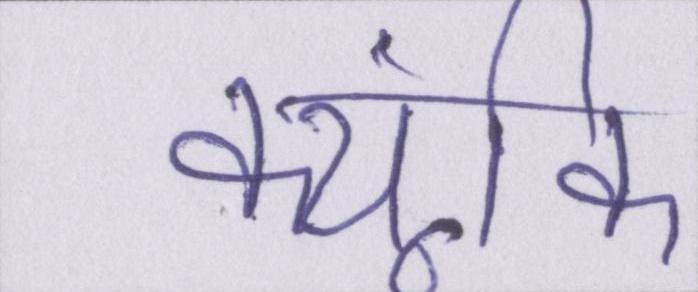 क्यूंकि